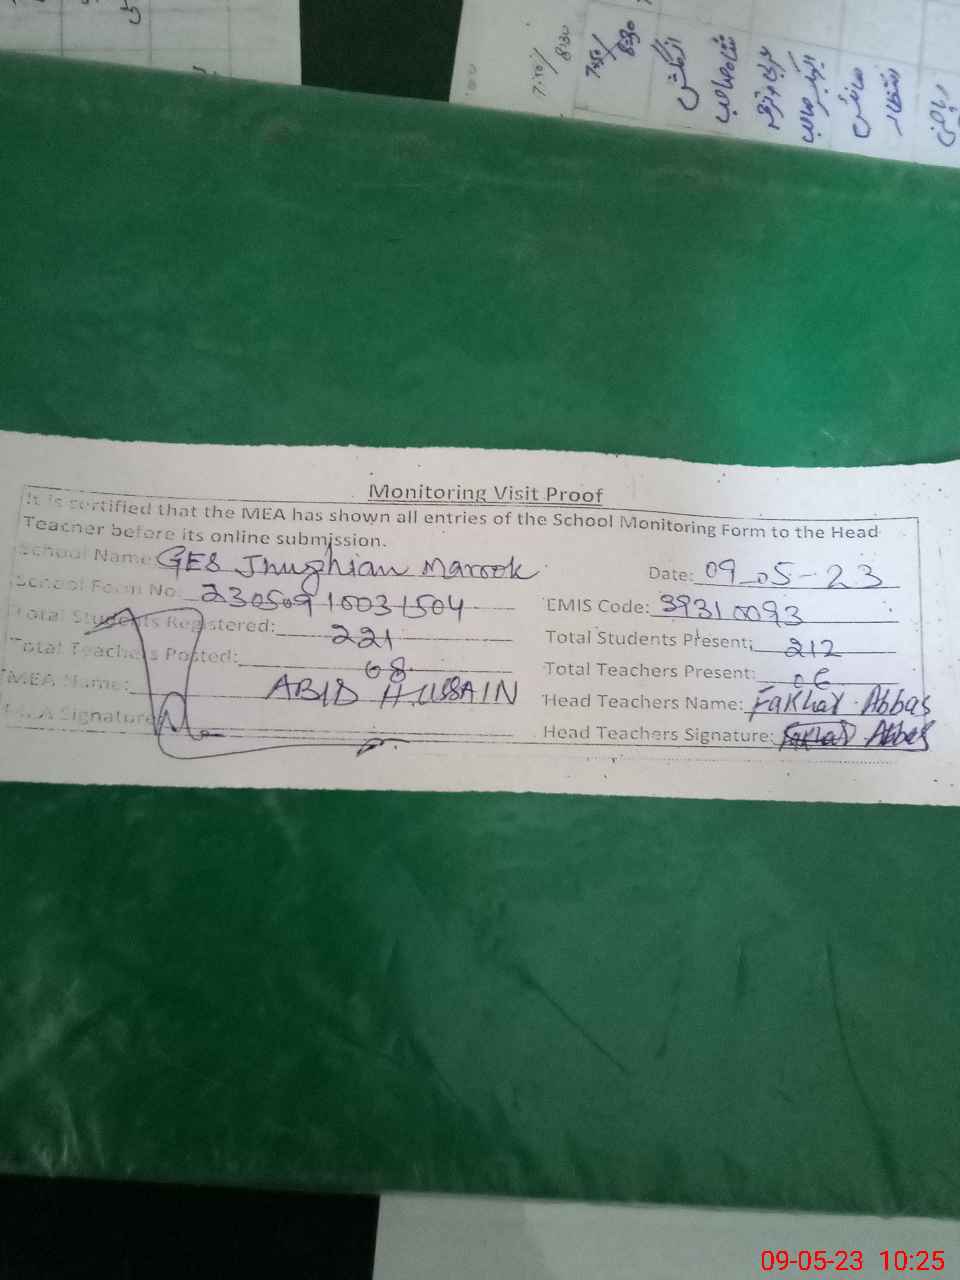 7:50/
8:30
7:50/
8:30
انگلش
ریاضی
Monitoring Visit Proof
It is certified that the MEA has shown all entries of the School Monitoring Form to the Head
Teacher before its online submission.
School Name: GES Jhughian Marook Date: 09-05-23
School Form No: EMIS Code: 39310093
Total Students Registered: 221 Total Students Present: 212
Total Teachers Posted: 08 Total Teachers Present: 06
MEA Name: ABID HUSSAIN Head Teachers Name: Fakhar Abbas
MEA Signature Head Teachers Signature: Fakhar Abbas
09-05-23 10:25